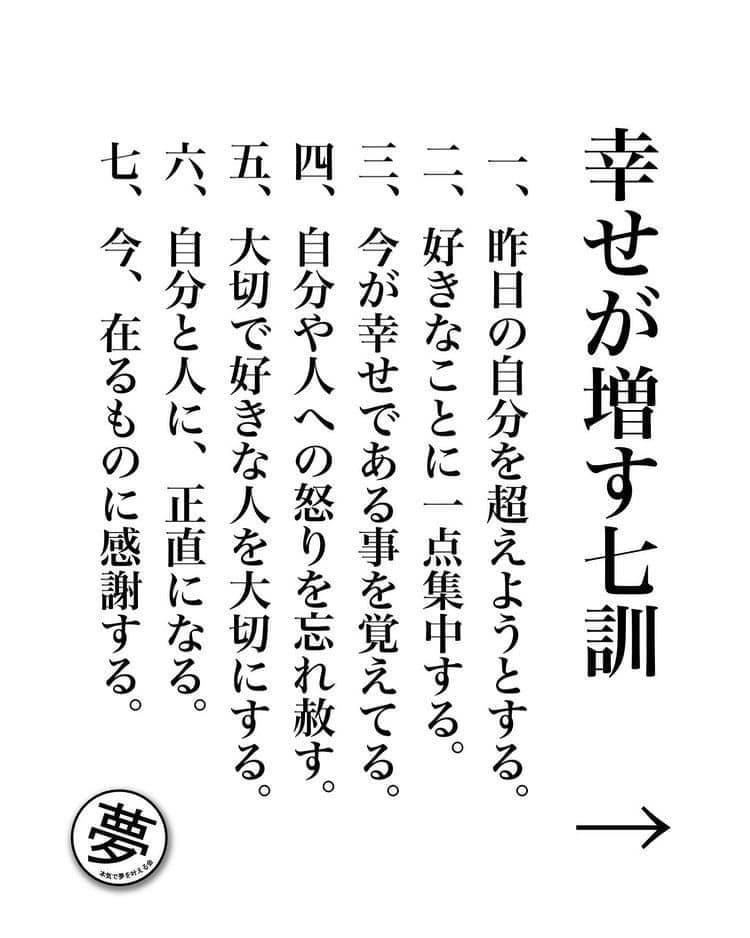 幸せが増す七訓
一、昨日の自分を超えようとする。
二、好きなことに一点集中する。
三、今が幸せである事を覚えてる。
四、自分や人への怒りを忘れ赦す。
五、大切で好きな人を大切にする。
六、自分と人に、正直になる。
七、今、在るものに感謝する。
→
夢
本気で夢を叶える会